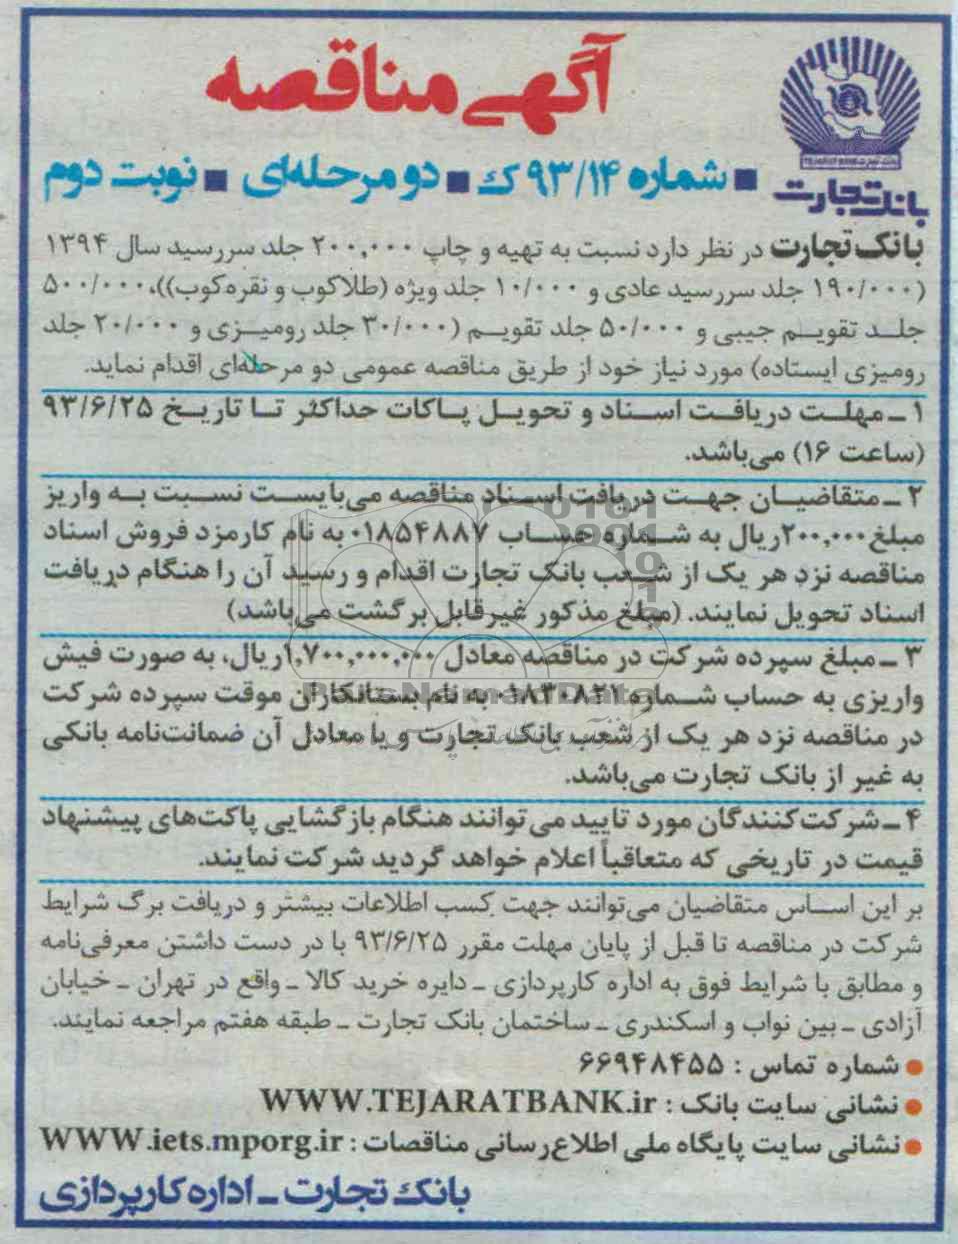 آگهی مناقصه
TEJARAT BANK بانک تجارت
بانک تجارت
■ شماره ۹۳/۱۴ ک ■ دو مرحله‌ای ■ نوبت دوم
بانک تجارت در نظر دارد نسبت به تهیه و چاپ ۲۰۰,۰۰۰ جلد سررسید سال ۱۳۹۴
(۱۹۰/۰۰۰ جلد سررسید عادی و ۱۰/۰۰۰ جلد ویژه (طلاکوب و نقره‌کوب))، ۵۰۰/۰۰۰
جلـد تقویـم جیبی و ۵۰/۰۰۰ جلد تقویـم (۳۰/۰۰۰ جلد رومیـزی و ۲۰/۰۰۰ جلد
رومیزی ایستاده) مورد نیاز خود از طریق مناقصه عمومی دو مرحله‌ای اقدام نماید.
۱ـ مهلـت دریافـت اسـناد و تحویـل پـاکات حداکثر تـا تاریـخ ۹۳/۶/۲۵
(ساعت ۱۶) می‌باشد.
۲ـ متقاضیـان جهـت دریافت اسـناد مناقصه می‌بایسـت نسـبت بـه واریز
مبلغ ۲۰۰,۰۰۰ریال به شـماره حسـاب ۰۱۸۵۴۸۸۷ به نام کارمزد فروش اسناد
مناقصه نزد هر یک از شـعب بانک تجارت اقدام و رسید آن را هنگام دریافت
اسناد تحویل نمایند. (مبلغ مذکور غیرقابل برگشت می‌باشد)
۳ـ مبلغ سپرده شرکت در مناقصه معادل ۱,۷۰۰,۰۰۰,۰۰۰ریال، به صورت فیش
واریزی به حساب شـماره ۰۱۸۳۰۸۲۱ به نام بستانکاران موقت سپرده شرکت
در مناقصه نزد هر یک از شعب بانک تجارت و یا معادل آن ضمانت‌نامه بانکی
به غیر از بانک تجارت می‌باشد.
۴ـ شرکت‌کنندگان مورد تایید می‌توانند هنگام بازگشایی پاکت‌های پیشنهاد
قیمت در تاریخی که متعاقباً اعلام خواهد گردید شرکت نمایند.
بر این اسـاس متقاضیان می‌توانند جهت کسب اطلاعات بیشتر و دریافت برگ شرایط
شرکت در مناقصه تا قبل از پایان مهلت مقرر ۹۳/۶/۲۵ با در دست داشتن معرفی‌نامه
و مطابق با شرایط فوق به اداره کارپردازی ـ دایره خرید کالا ـ واقع در تهران ـ خیابان
آزادی ـ بین نواب و اسکندری ـ ساختمان بانک تجارت ـ طبقه هفتم مراجعه نمایند.
● شماره تماس : ۶۶۹۴۸۴۵۵
● نشانی سایت بانک : WWW.TEJARATBANK.ir
● نشانی سایت پایگاه ملی اطلاع‌رسانی مناقصات : WWW.iets.mporg.ir
بانک تجارت ـ اداره کارپردازی